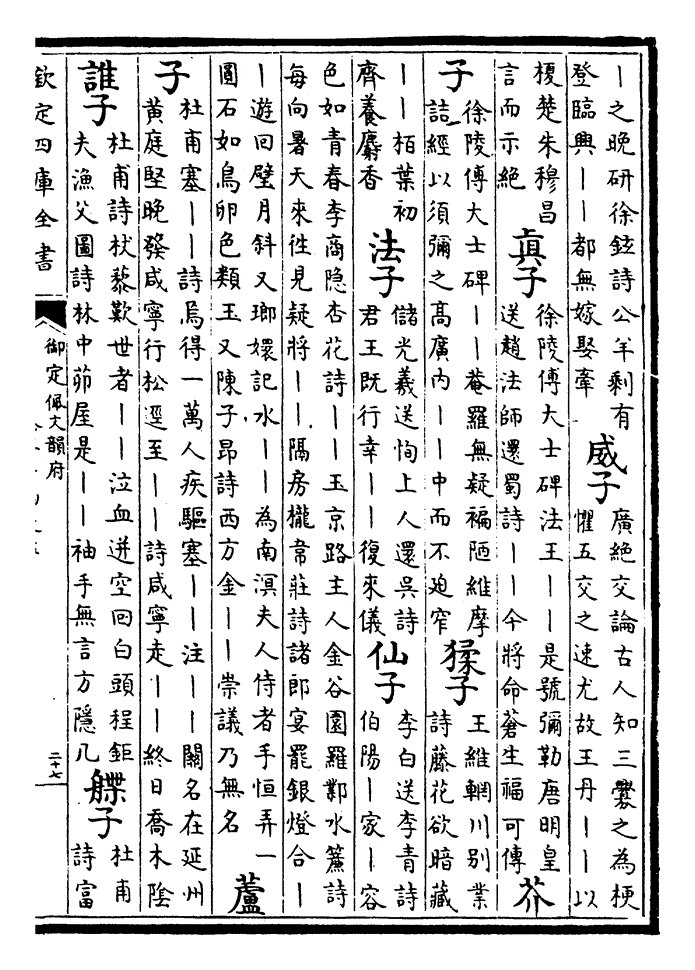 丨之晚研徐鉉詩公羊剩有
登臨興丨丨都無嫁娶牽
威子
廣絶交論古人知三釁之為梗
懼五交之速尤故王丹丨丨以
檟楚朱穆昌
言而示絶
眞子
徐陵傅大士碑法王丨丨是號彌勒唐明皇
送趙法師還蜀詩丨丨今將命蒼生福可傳
芥
子
徐陵傅大士碑丨丨菴羅無疑褊陋維摩
詰經以須彌之高廣内丨丨中而不廹窄
猱子
王維輞川别業
詩藤花欲暗藏
丨丨栢葉初
齊養麝香
法子
儲光羲送恂上人還吳詩
君王既行幸丨丨復來儀
仙子
李白送李青詩
伯陽丨家丨容
色如青春李商隱杏花詩丨丨玉京路主人金谷園羅鄴水簾詩
每向暑天來徃見疑將丨丨隔房櫳韋莊詩諸郎宴罷銀燈合丨
丨遊回璧月斜又瑯嬛記水丨丨為南溟夫人侍者手恒弄一
圓石如鳥卵色類玉又陳子昂詩西方金丨丨崇議乃無名
蘆
子
杜甫塞丨丨詩焉得一萬人疾驅塞丨丨注丨丨關名在延州
黄庭堅晚發咸寧行松逕至丨丨詩咸寧走丨丨終日喬木隂
誰子
杜甫詩杖藜歎世者丨丨泣血迸空回白頭程鉅
夫漁父圖詩林中茆屋是丨丨袖手無言方隱几
艓子
杜甫
詩富
欽定四庫全書
御定佩文韻府
二十七